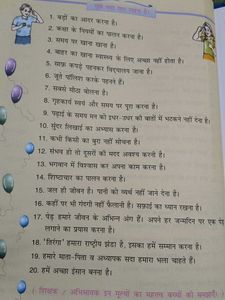 1. बड़ों का आदर करना है।
2. कक्षा के नियमों का पालन करना है।
3. समय पर खाना खाना है।
4. बाहर का खाना स्वास्थ्य के लिए अच्छा नहीं होता है।
5. साफ़ कपड़े पहनकर विद्यालय जाना है।
6. जूते पॉलिश करके पहनने हैं।
7. सबसे मीठा बोलना है।
8. गृहकार्य स्वयं और समय पर पूरा करना है।
9. पढ़ाई के समय मन को इधर-उधर की बातों में भटकने नहीं देना है।
10. सुंदर लिखाई का अभ्यास करना है।
11. कभी किसी का बुरा नहीं सोचना है।
12. संभव हो तो दूसरों की मदद अवश्य करनी है।
13. भगवान में विश्वास कर अपना काम करना है।
14. शिष्टाचार का पालन करना है।
15. जल ही जीवन है। पानी को व्यर्थ नहीं जाने देना है।
16. कहीं पर भी गंदगी नहीं फैलानी है। सफ़ाई का ध्यान रखना है।
17. पेड़ हमारे जीवन के अभिन्न अंग हैं। अपने हर जन्मदिन पर एक पेड़
लगाने का प्रयास करना है।
18. 'तिरंगा' हमारा राष्ट्रीय झंडा है, इसका हमें सम्मान करना है।
19. हमारे माता-पिता व अध्यापक सदा हमारा भला चाहते हैं।
20. हमें अच्छा इंसान बनना है।
शिक्षक / अभिभावक इन मूल्यों का महत्त्व बच्चों को समझाएँ।